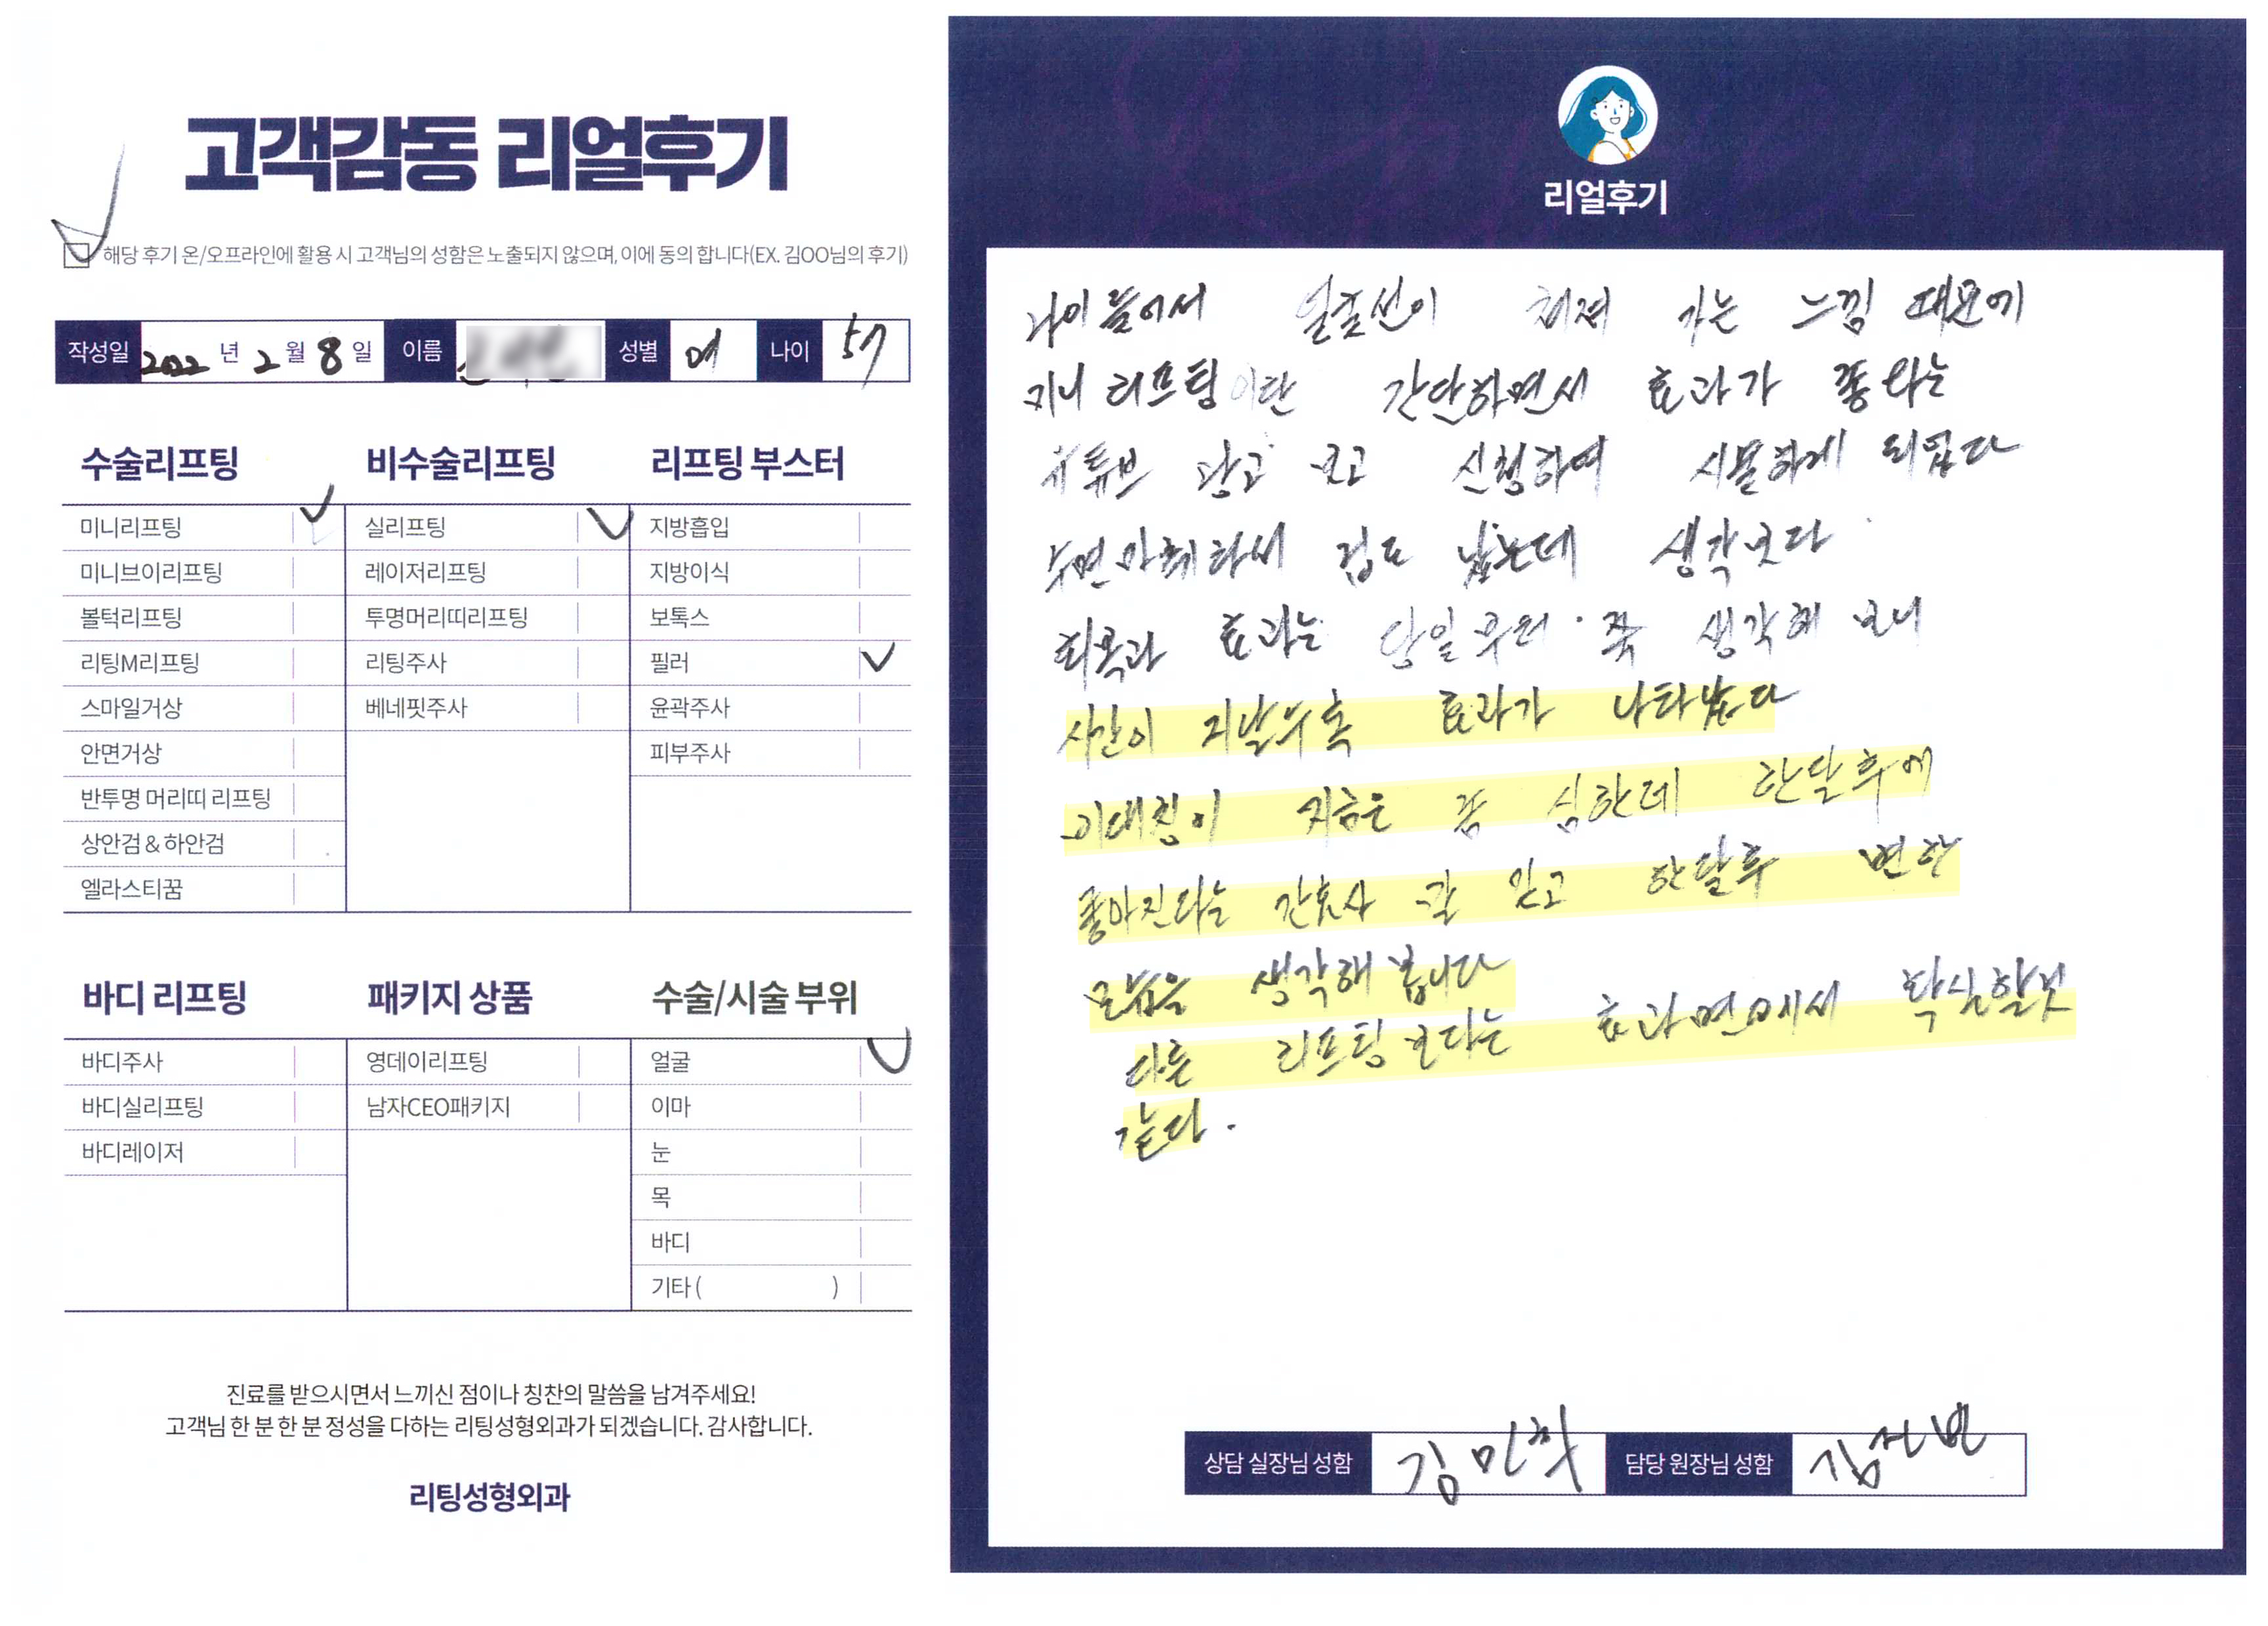 고객감동 리얼후기
해당 후기 온/오프라인에 활용 시 고객님의 성함은 노출되지 않으며, 이에 동의 합니다(EX. 김OO님의 후기)
작성일 2022 년 2 월 8 일 이름 성별 여 나이 57
수술리프팅
미니리프팅
미니브이리프팅
볼턱리프팅
리팅M리프팅
스마일거상
안면거상
반투명 머리띠 리프팅
상안검 & 하안검
엘라스티꿈
비수술리프팅
실리프팅
레이저리프팅
투명머리띠리프팅
리팅주사
베네핏주사
리프팅 부스터
지방흡입
지방이식
보톡스
필러
윤곽주사
피부주사
바디 리프팅
바디주사
바디실리프팅
바디레이저
패키지 상품
영데이리프팅
남자CEO패키지
수술/시술 부위
얼굴
이마
눈
목
바디
기타 ( )
진료를 받으시면서 느끼신 점이나 칭찬의 말씀을 남겨주세요!
고객님 한 분 한 분 정성을 다하는 리팅성형외과가 되겠습니다. 감사합니다.
리팅성형외과
리얼후기
나이 들어서 얼굴선이 쳐져 가는 느낌 때문에
미니 리프팅이란 간단하면서 효과가 좋다는
유튜브 광고 보고 신청하여 시술하게 되었다
수면마취하서 겁도 났는데 생각보다
회복과 효과는 당일 쭉 생각해 보니
시간이 지날수록 효과가 나타났다
비대칭이 지금은 좀 심한데 한달후에
좋아진다는 간호사 말 믿고 한달후 변한
모습을 생각해 봅니다
다른 리프팅보다는 효과면에서 확실할것
같다.
상담 실장님 성함 김민학 담당 원장님 성함